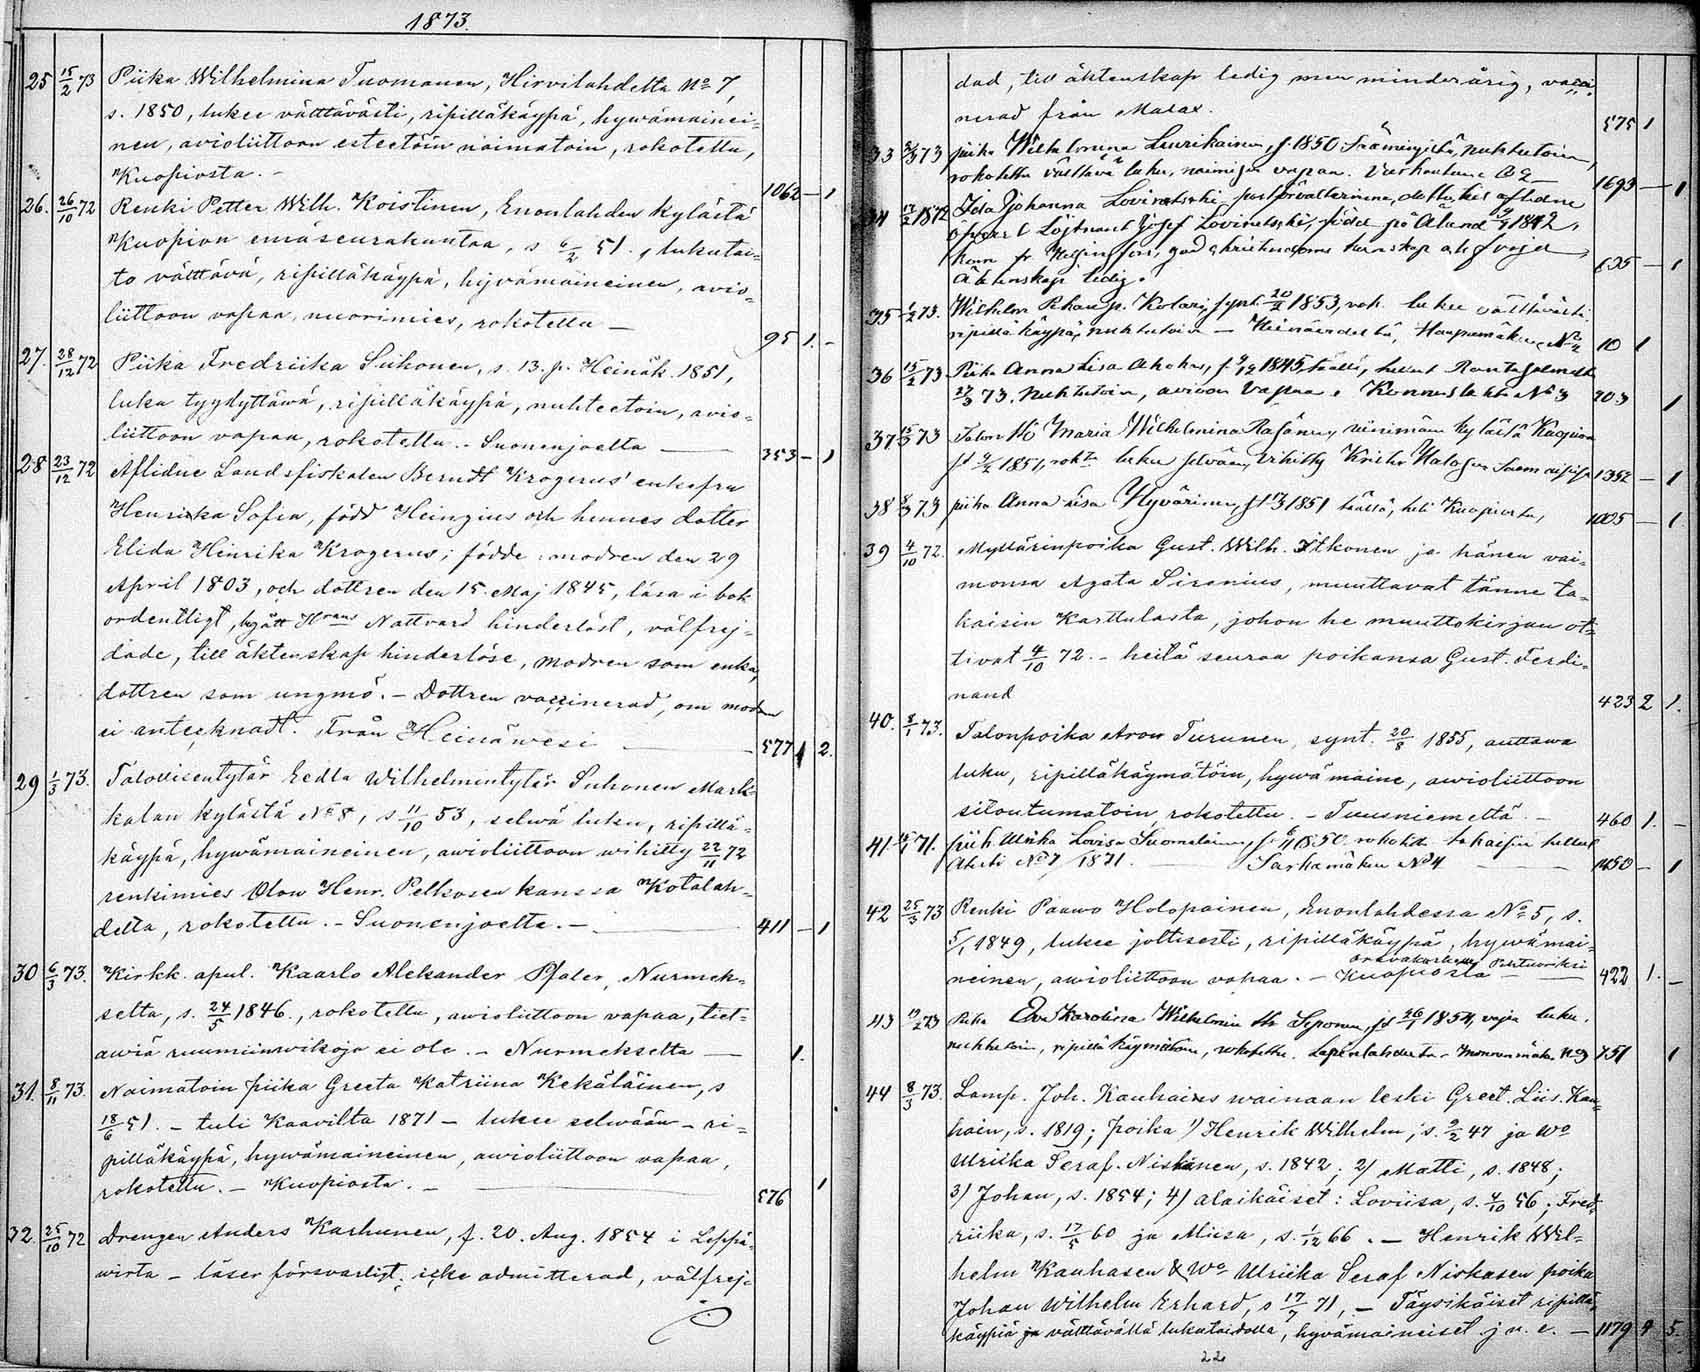 1873.
25 15/2 73 Piika Wilhelmina Tuomanen, Hirvilahdelta No 7,
s. 1850, lukee välttävästi, ripilläkäypä, hywämainei-
nen, avioliittoon esteetöin naimatoin, rokotettu,
Kuopiosta. - 1062 - 1
26. 26/10 72 Renki Petter Wilh. Koistinen, Enonlahden kylästä
Kuopion emäseurakuntaa, s 6/2 51., lukutai-
to välttävä, ripilläkäypä, hyvämaineinen, avio-
liittoon vapaa, nuorimies, rokotettu - 95 1. -
27. 28/12 72 Piika Fredriika Suhonen, s. 13. p. Heinäk. 1851,
luku tyydyttäwä, ripilläkäypä, nuhteetoin, avio-
liittoon vapaa, rokotettu. - Suonenjoelta 353 - 1
28 23/12 72 Aflidne Landsfiskalen Berndt Krogerus' enkefru
Henrika Sofia, född Heingius och hennes dotter
Elida Hinrika Krogerus; födde: modren den 29
April 1803, och dottren den 15. Maj 1845, läsa i bok
ordentligt, begått Hrans Nattvard hinderlöst, välfrej-
dade, till äktenskap hinderlöse, modren som enka,
dottren som ungmö. - Dottren vaccinerad, om modren
ei antecknadt. Från Heinäwesi 577 1 2.
29 1/3 73. Talollisentytär Eedla Wilhelmintytär Suhonen Mark-
kalan kylästä No 8, s 11/10 53, selwä luku, ripillä-
käypä, hywämaineinen, awioliittoon wihitty 22/11 72
renkimies Olow Henr. Pelkosen kanssa Kotalah-
delta, rokotettu. - Suonenjoelta. - 411 - 1
30 6/3 73. Kirkk. apul. Kaarlo Aleksander Pfaler, Nurmek-
selta, s. 24/5 1846., rokotettu, awioliittoon vapaa, tiet-
äwiä ruumiinwikoja ei ole. - Nurmekselta - 1.
31. 8/11 73. Naimatoin piika Greeta Katriina Kekäläinen, s
18/6 51. - tuli Kaavilta 1871 - lukee selwään - ri-
pilläkäypä, hywämaineinen, awioliittoon vapaa,
rokotettu. - Kuopiosta. - 576 1
32. 25/10 72 Drengen Anders Karhunen, f. 20. Aug. 1854 i Leppä-
wirta - läser försvarligt, icke admitterad, välfrej-
dad, till äktenskap ledig men minderårig, vacci-
nerad från Malax. 575 1
33 73 piika Wilhelmina Laurikainen, f. 1850 nuhteetoin,
rokotettu välttävä luku, naimisen vapaa. 1693 - 1
34 17/2 1872 Ida Johanna dotter, hos aflidne
Löjtnant Josef född på Åland 1842,
kom fr Helsingfors, god kristendoms kunskap och frejd
Äktenskap ledig. 635 - 1
35 1/2 73. Wilhelm p. Kolari, synt. 20/2 1853, rok. lukee välttävästi.
ripillä käypä, nuhteetoin - Haapamäki No 2 10 1
36 15/2 73 Piika Anna Lisa Ahokas, f. 1845, täällä, tullut Rantasalmelta
73. Nuhtetoin, avioon vapaa. Konnuslahti No 3 203 1
37 15/3 73 Talon Maria Wilhelmina Räsänen, kylästä Kuopion
1851, lukee selvään, Vihitty 1352 - 1
38 8/3 73 piika Anna Lisa Hyvärinen, 1851 täällä, tuli Kuopiosta, 1005 - 1
39 4/10 72. Myllärinpoika Gust. Wilh. Itkonen ja hänen vai-
monsa Agata Sirenius, muuttavat tänne ta-
kaisin Karttulasta, johon he muuttokirjan ot-
tivat 4/10 72. - heitä seuraa poikansa Gust. Ferdi-
nand 423 2 1.
40. 8/1 73. Talonpoika Aron Turunen, synt. 20/8 1855, auttawa
luku, ripilläkäymätöin, hywämaine, awioliittoon
sitoutumatoin, rokotettu. - Tuusniemeltä. - 460 1. -
41 71. piik. Ulrika Lovisa Suomalainen, 1850 rokotettu takaisin tullut
No 7 1871. Sarkamäkeen No 4 1450 - 1
42 25/3 73 Renki Paawo Holopainen, Enonlahdessa No 5, s.
5/1 1849, lukee jotisesti, ripilläkäypä, hywämai-
neinen, awioliittoon vapaa. - Kuopiosta 422 1. -
43 73 Piika Eva Karolina Wilhelmin tr Seponen, 26/1 1854, vajaa luku.
nuhtetoin, ripillä käymätöin, rokotettu. Lapinlahdesta. No 3 751 1
44 8/3 73. Lamp. Joh. Kauhasen wainaan leski Greet. Liis. Kau-
hain, s. 1819; poika 1) Henrik Wilhelm, s. 9/2 47 ja Wo
Ulriika Seraf. Niskanen, s. 1842; 2) Matti, s. 1848;
3) Johan, s. 1854; 4) alaikäiset: Loviisa, s. 4/10 56; Fred-
riika, s. 17/5 60 ja Miisa, s. 1/12 66. - Henrik Wil-
helm Kauhasen & Wo Ulriika Seraf Niskasen poika
Johan Wilhelm Erhard, s 17/7 71, - Täysikäiset ripillä-
käypiä ja välttävällä lukutaidolla, hyvämaineiset j. n. e. - 1179 4 5.
22